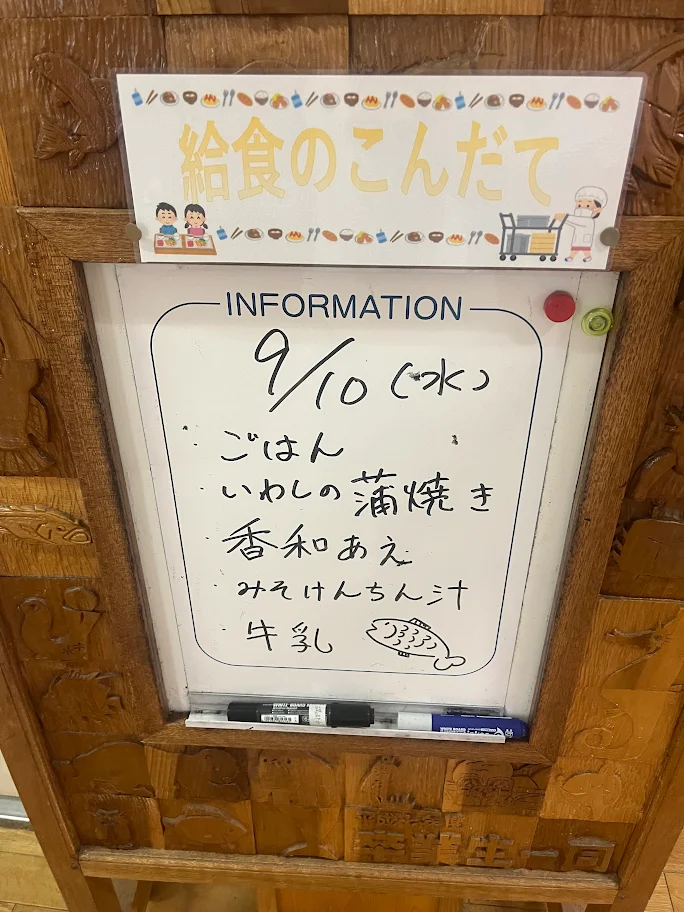 給食のこんだて
INFORMATION
9/10 (水)
・ごはん
・いわしの蒲焼き
・香和あえ
・みそけんちん汁
・牛乳
卒業生一同